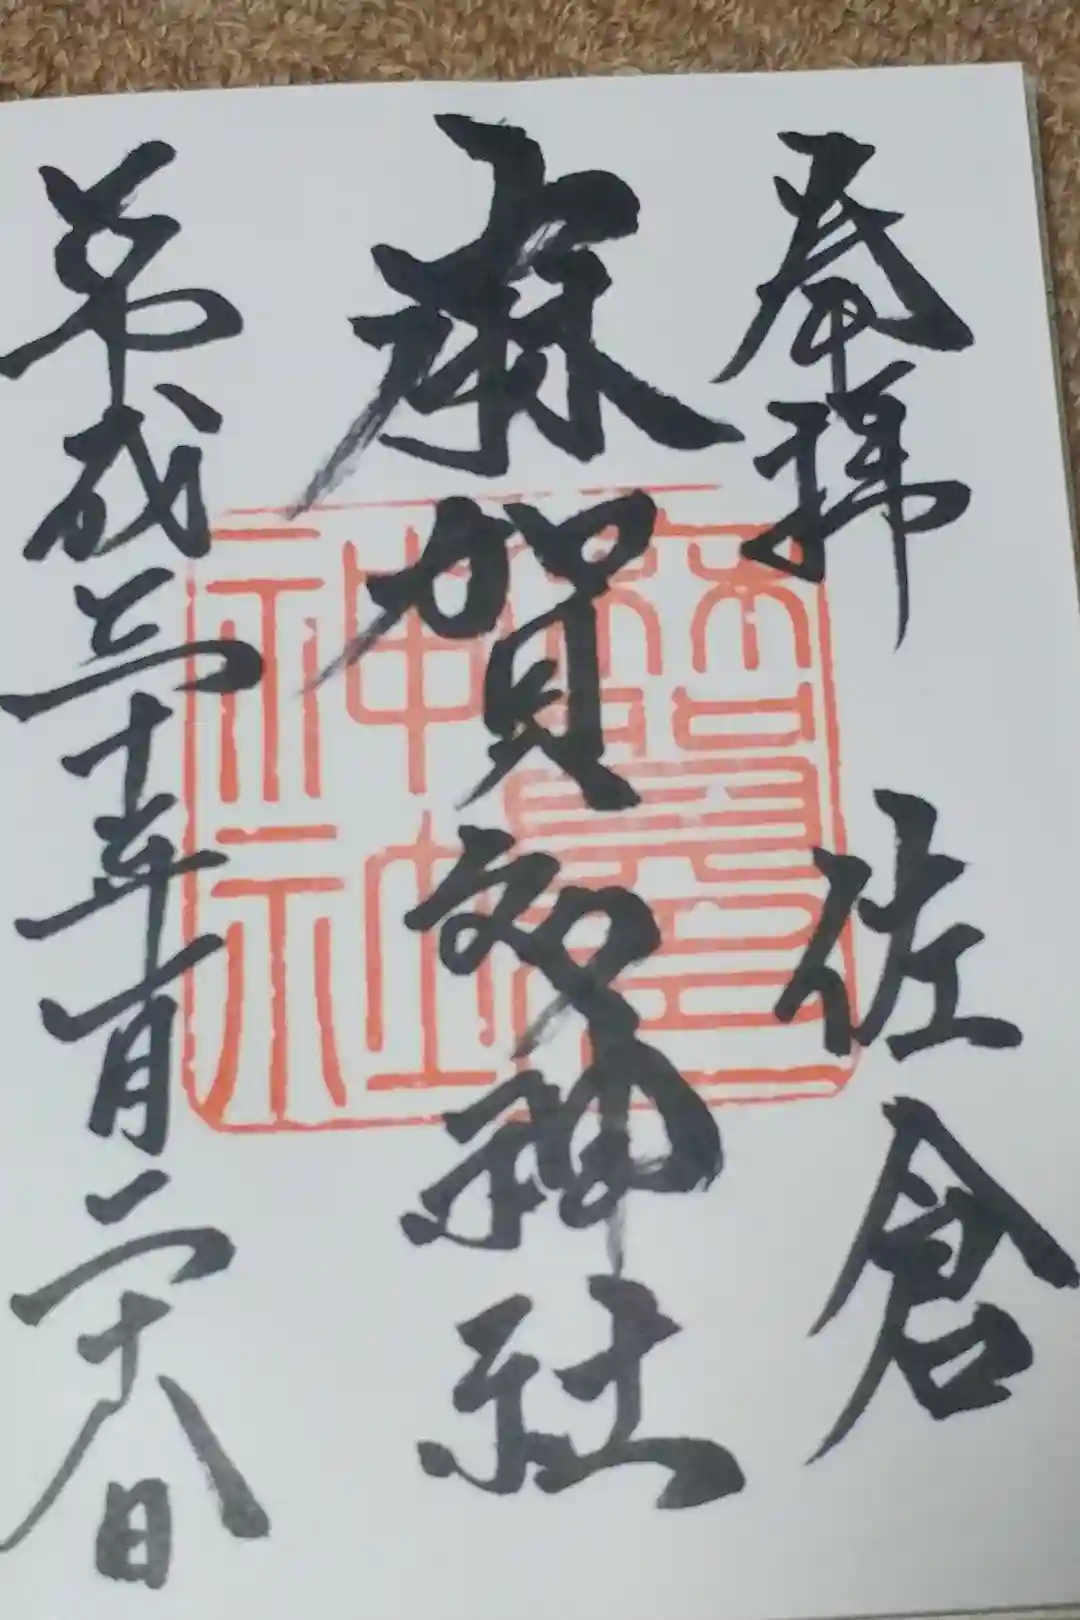 奉拝 佐倉
麻賀多神社
平成三十年一月二十八日
神社